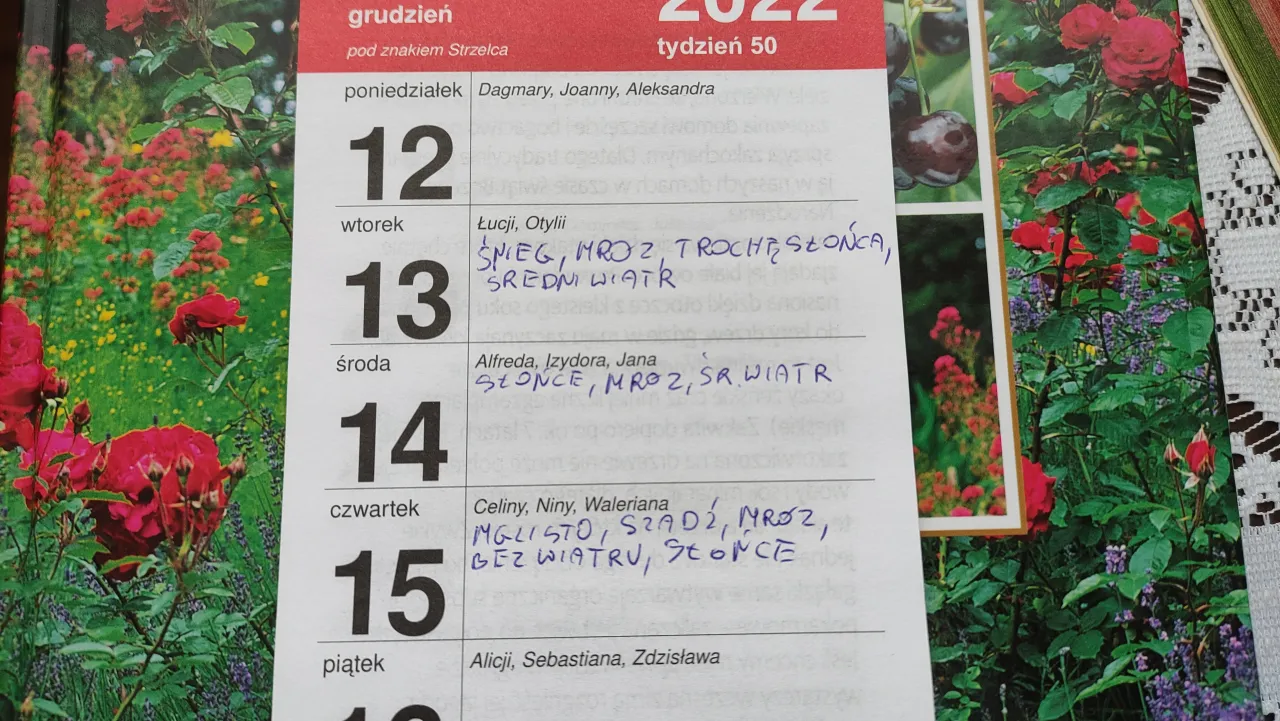 grudzień
2022
pod znakiem Strzelca
tydzień 50
poniedziałek
Dagmary, Joanny, Aleksandra
12
wtorek
Łucji, Otylii
ŚNIEG, MRÓZ, TROCHĘ SŁOŃCA,
ŚREDNI WIATR
13
środa
Alfreda, Izydora, Jana
SŁOŃCE, MRÓZ, ŚR. WIATR
14
czwartek
Celiny, Niny, Waleriana
MGLISTO, SZADŹ, MRÓZ,
BEZ WIATRU, SŁOŃCE
15
piątek
Alicji, Sebastiana, Zdzisława